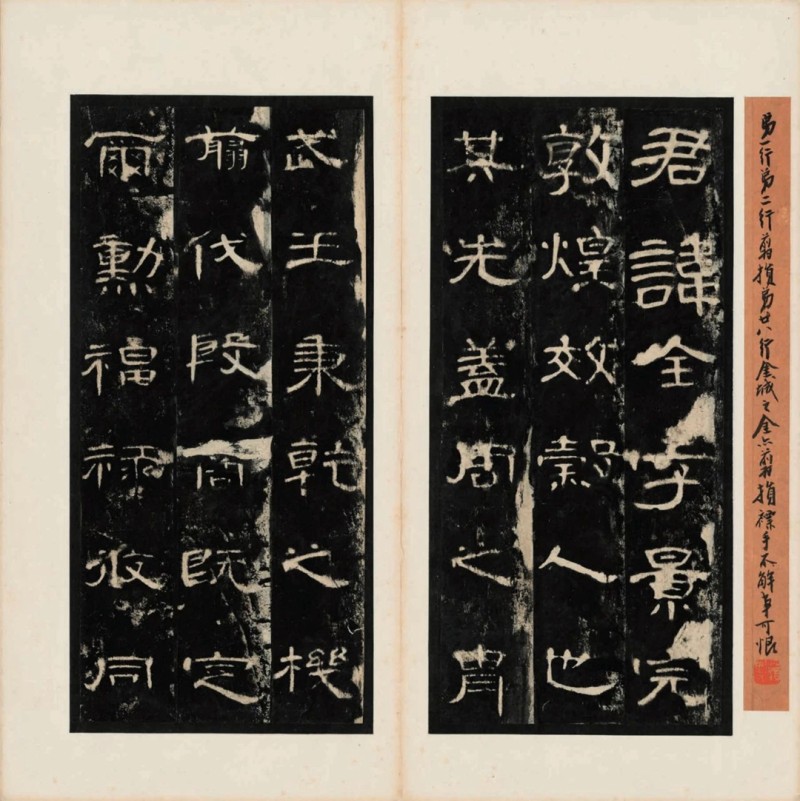 弟一行弟二行翦損弟廿八行金城之金亦翦損褾手不解事可恨
君諱全字景完
敦煌效穀人也
其先蓋周之冑
武王秉乾之機
翦伐殷商既定
爾勳福祿攸同